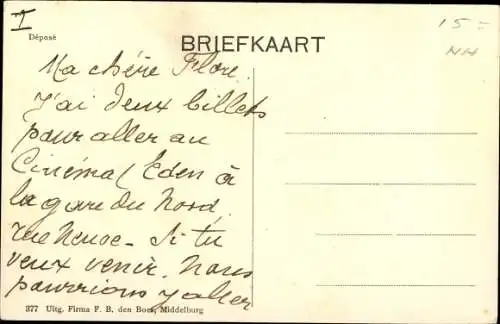 I
15 =
NH
Déposé
BRIEFKAART
Ma chére Flore
J'ai deux billets
pour aller au
Cinéma (Eden à
la gare du Nord
rue neuve - si tu
veux venir. Nous
pourrions y aller
377 Uitg. Firma F. B. den Boer, Middelburg